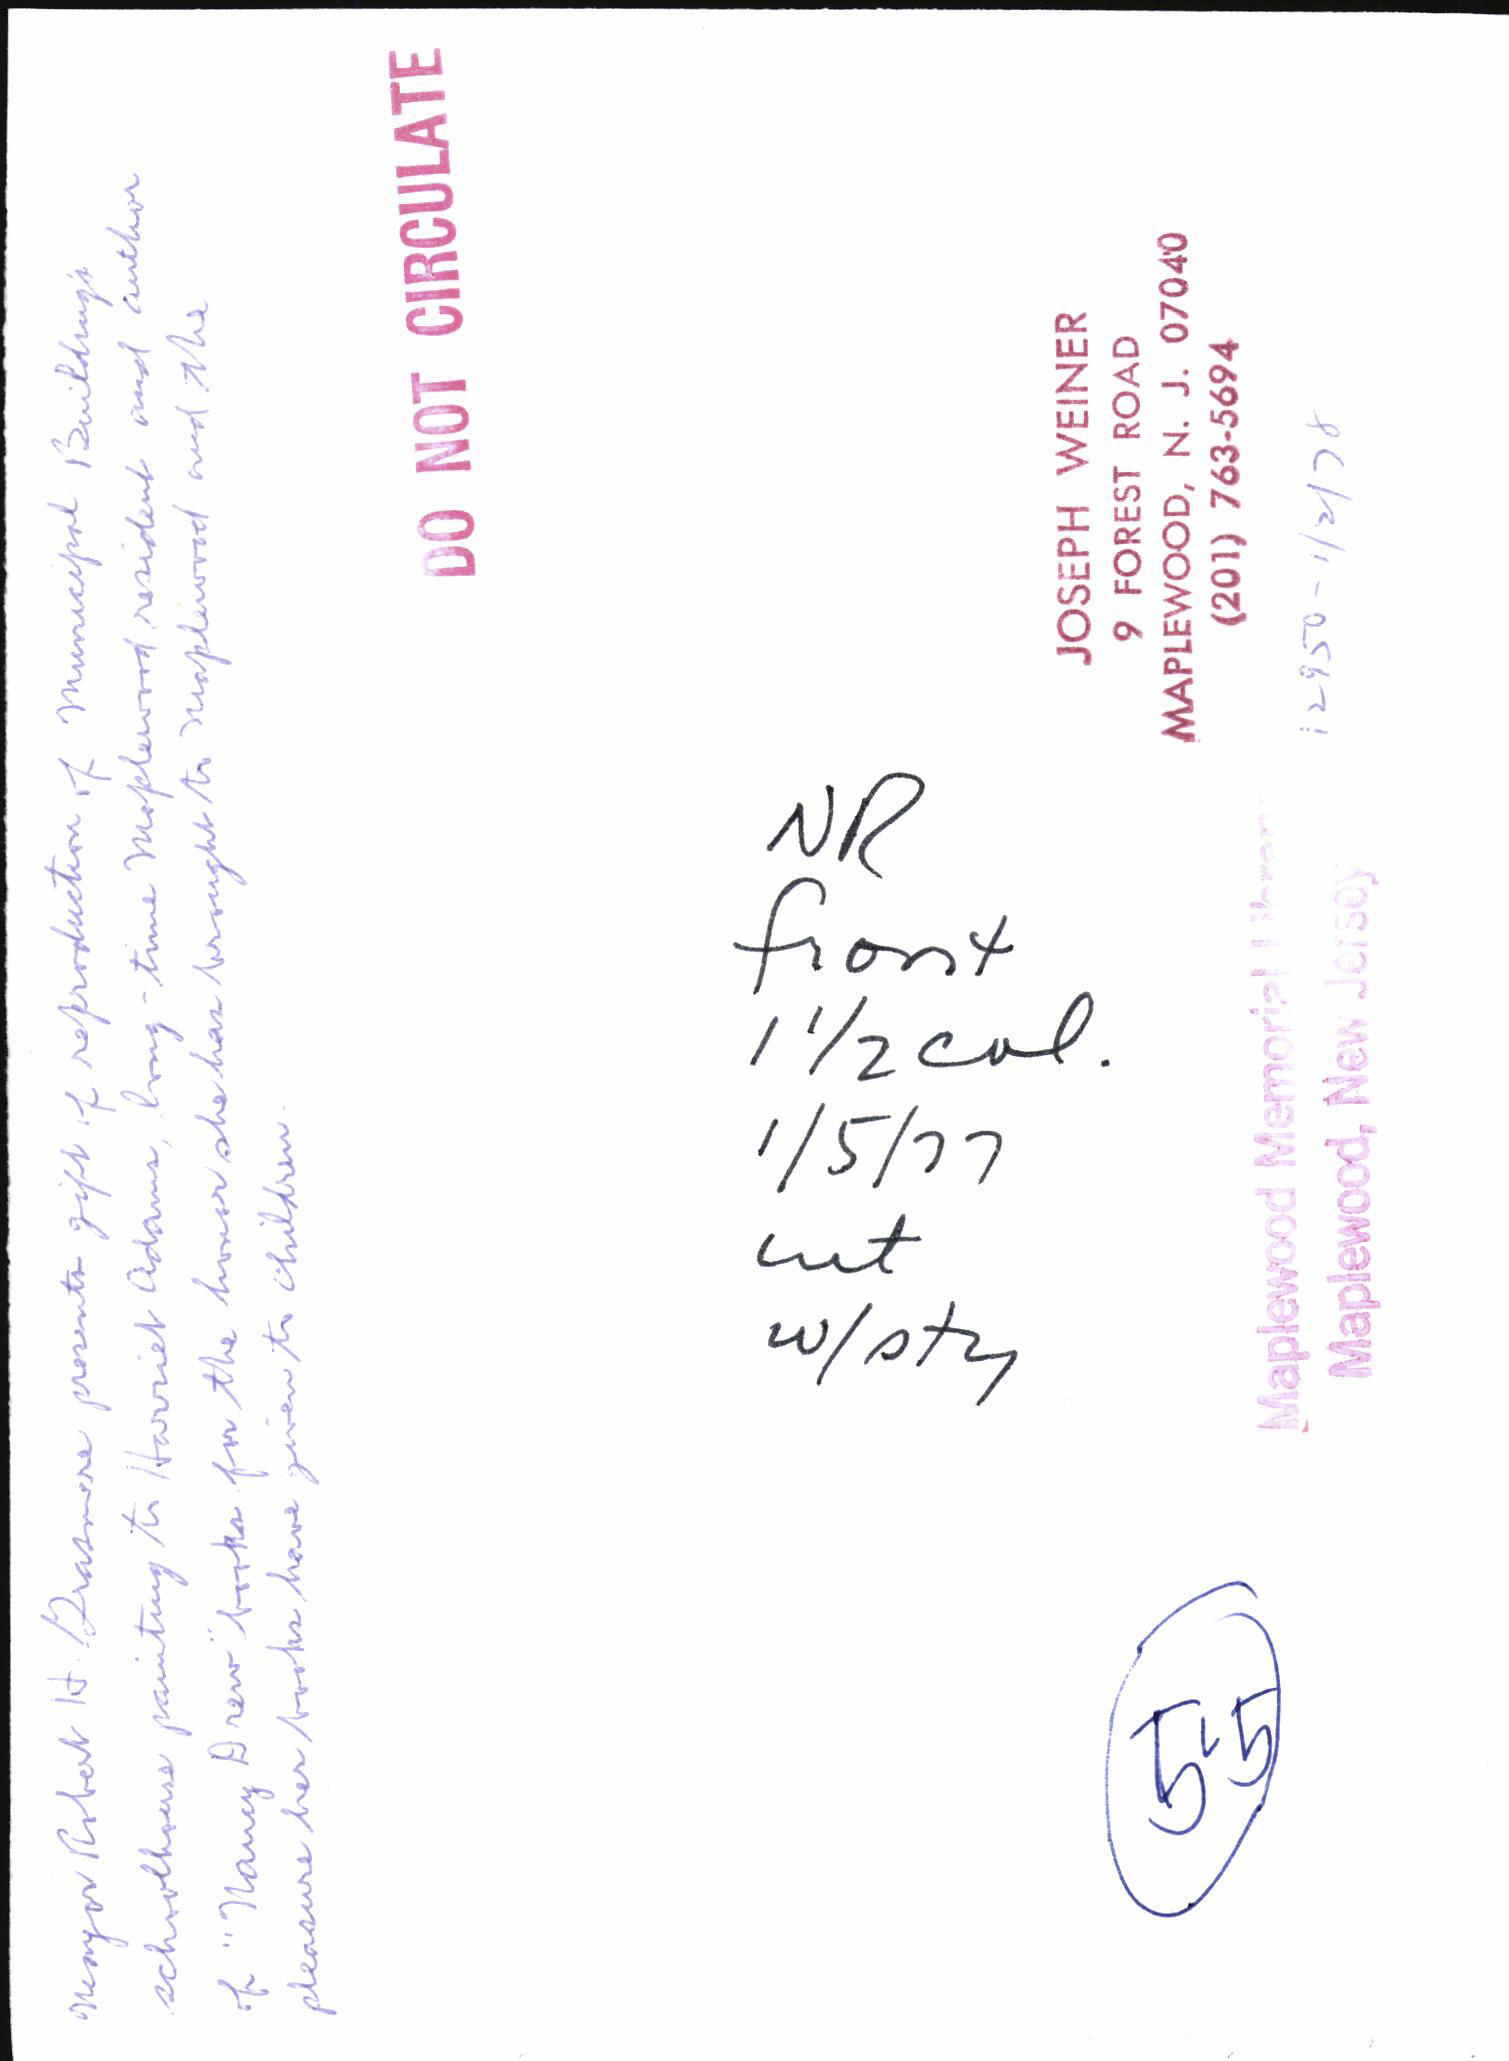 Mayor Robert H. Grasmere presents gift of reproduction of Municipal Building's
schoolhouse painting to Harriet Adams, long-time Maplewood resident and author
of "Nancy Drew" books for the honor she has brought to Maplewood and the
pleasure her books have given to children.
DO NOT CIRCULATE
NR
front
1 1/2 col.
1/5/77
cut
w/sty
JOSEPH WEINER
9 FOREST ROAD
MAPLEWOOD, N. J. 07040
(201) 763-5694
12950-1/2/78
Maplewood Memorial Library
Maplewood, New Jersey
55